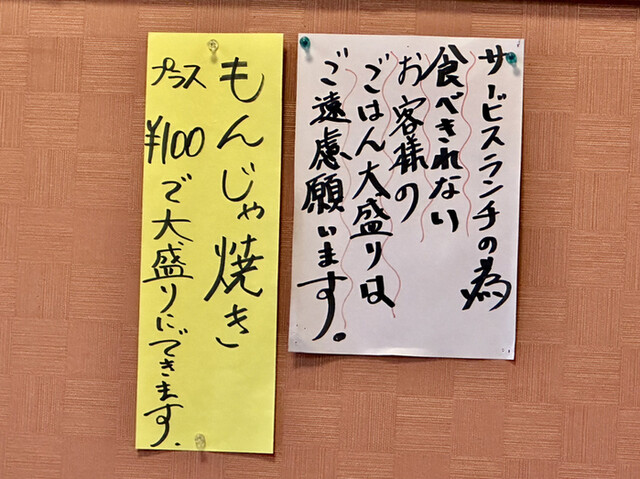 サービスランチの為
食べきれない
お客様の
ごはん大盛りは
ご遠慮願います。
もんじゃ焼き
プラス ¥100で大盛りにできます.